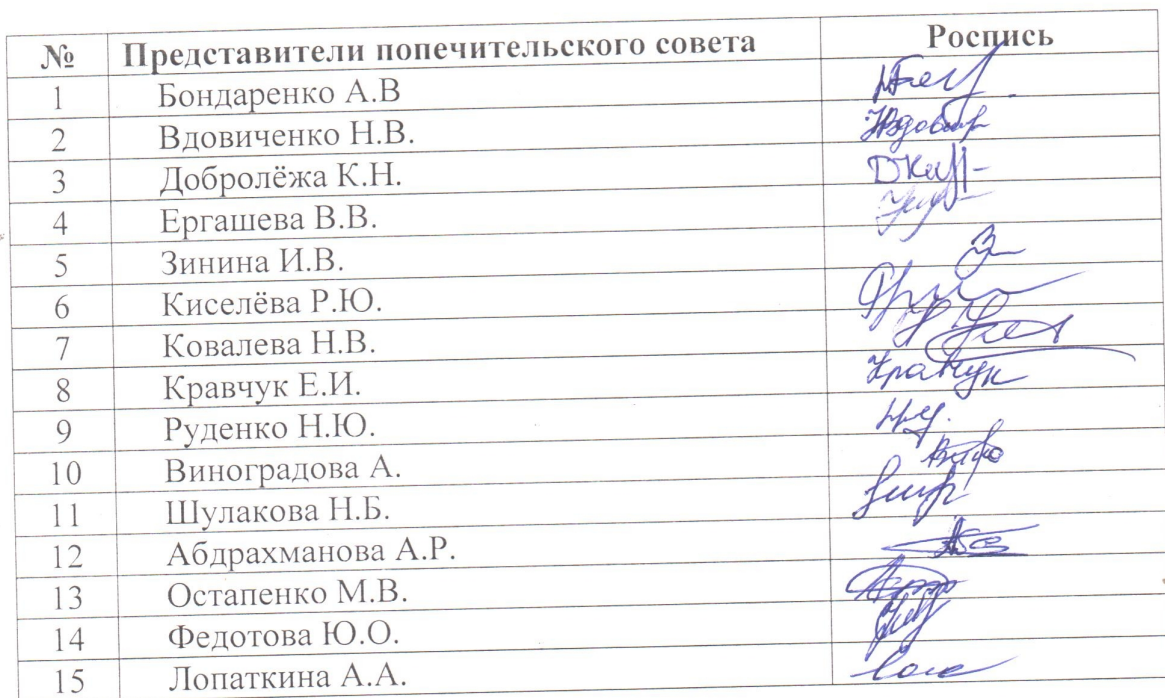 № Представители попечительского совета Роспись
1 Бондаренко А.В
2 Вдовиченко Н.В.
3 Добролёжа К.Н.
4 Ергашева В.В.
5 Зинина И.В.
6 Киселёва Р.Ю.
7 Ковалева Н.В.
8 Кравчук Е.И. Кравчук
9 Руденко Н.Ю.
10 Виноградова А.
11 Шулакова Н.Б.
12 Абдрахманова А.Р.
13 Остапенко М.В.
14 Федотова Ю.О.
15 Лопаткина А.А.